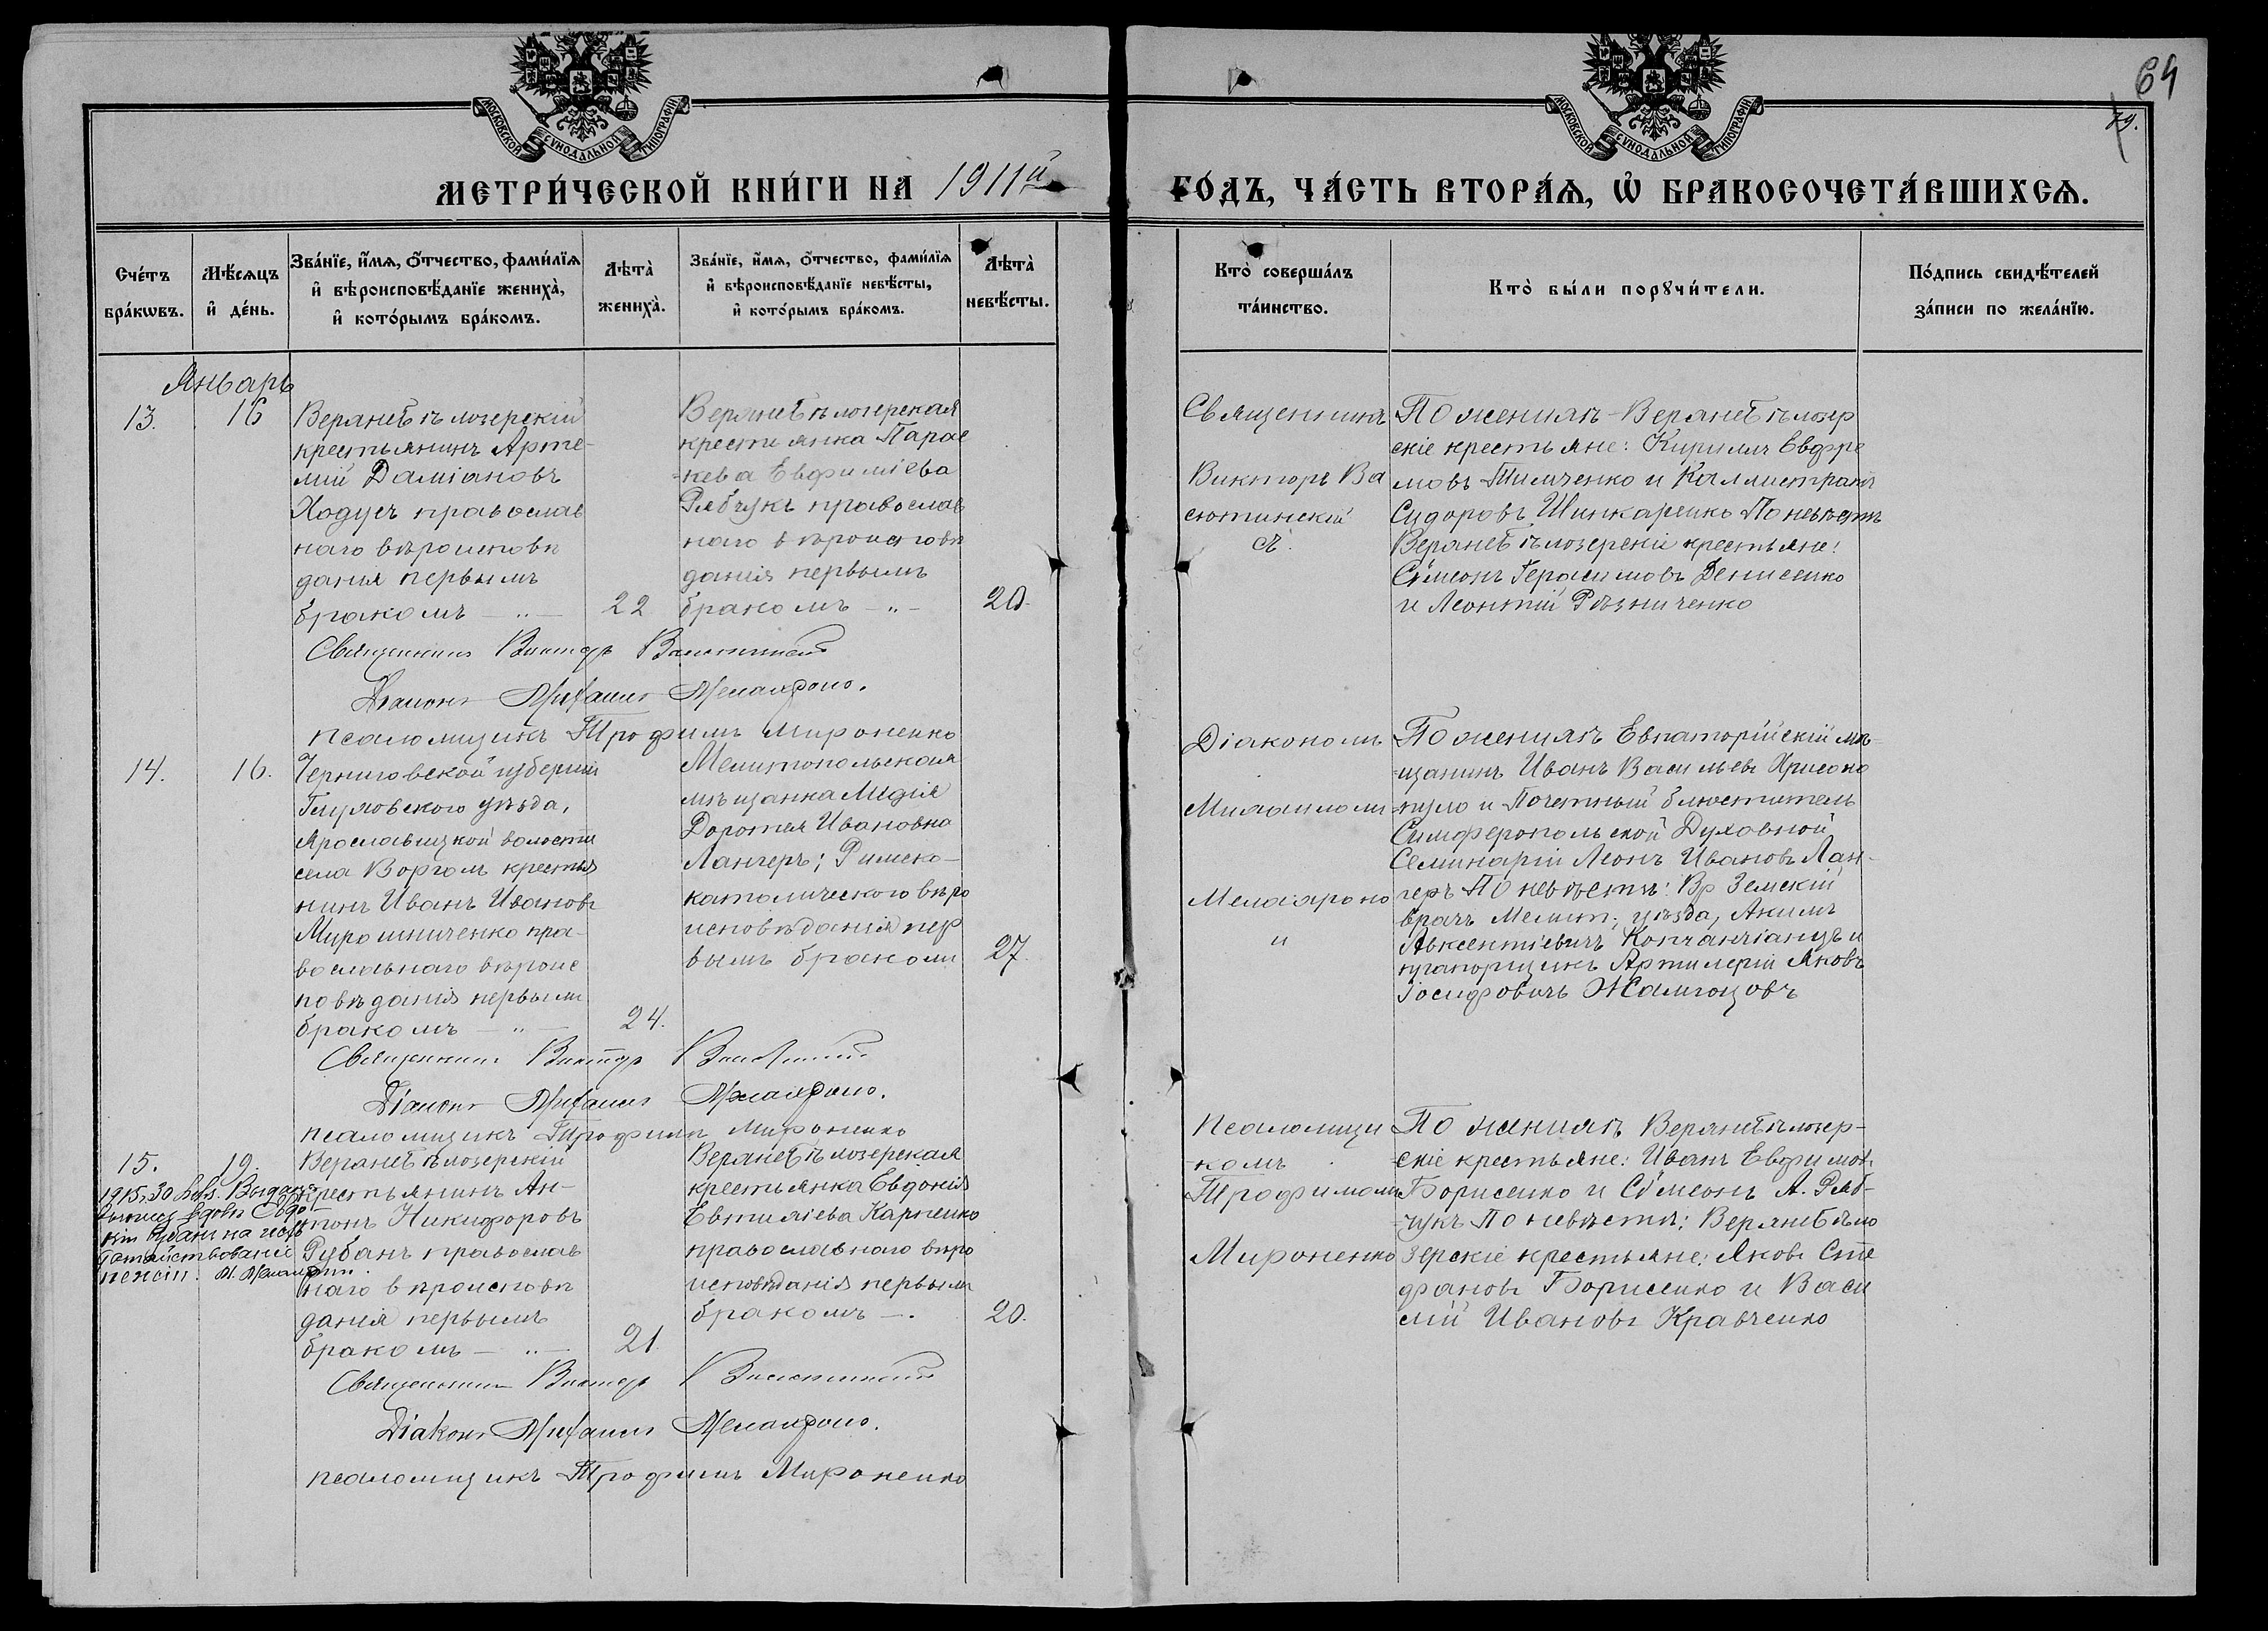 64
79.
МОСКОВСКОЙ СУНОДАЛЬНОЙ ТИПОГРАФІИ
МОСКОВСКОЙ СУНОДАЛЬНОЙ ТИПОГРАФІИ
МЕТРИ́ЧЕСКОЙ КНИ́ГИ НА 1911й
ГО́ДЪ, ЧА́СТЬ ВТОРА́Ѧ, Ѡ҆ БРАКОСОЧЕТА́ВШИХСѦ.
Сче́тъ
бра́кѡвъ.
Мѣ́сѧцъ
и҆ де́нь.
Зва́нїе, и҆́мѧ, ѻ҆́тчество, фами́лїѧ
и҆ вѣроисповѣ́данїе жениха̀,
и҆ кото́рымъ бра́комъ.
Лѣта̀
жениха̀.
Зва́нїе, и҆́мѧ, ѻ҆́тчество, фами́лїѧ
и҆ вѣроисповѣ́данїе невѣ́сты,
и҆ кото́рымъ бра́комъ.
Лѣта̀
невѣ́сты.
Кто̀ соверша́лъ
та́инство.
Кто̀ бы́ли порꙋчи́тели.
По́дпись свидѣ́телей
за́писи по жела́нїю.
Январь
13.
16
Верхнебѣлозерскій
крестьянинъ Арте-
мій Даміановъ
Ходусъ православ
наго вѣроисповѣ
данія первымъ
бракомъ — „ —
22
Верхнебѣлозерская
крестьянка Парас
-кева Евфиміева
Рябчукъ православ
наго вѣроисповѣ
данія первымъ
бракомъ — „ —
20.
Священникъ
Викторъ Ва
сютинскій
съ
По женихѣ - Верхнебѣлозер
скіе крестьяне: Кириллъ Евфре
мовъ Тимченко и Каллистратъ
Сидоровъ Шинкаренко По невѣстѣ
Верхнебѣлозерскіе крестьяне:
Сѵмеонъ Герасимовъ Денисенко
и Леонтій Рѣзниченко
Священникъ Викторъ Васютинскій
Діаконъ Михаилъ
псаломщикъ Трофимъ Мироненко
14.
16.
Черниговской губерніи
Глуховского уѣзда,
Ярославецкой волости
села Воргом крестья
нинъ Иванъ Ивановъ
Мирошниченко пра-
вославнаго вѣроис
повѣданія первымъ
бракомъ — „ —
24.
Мелитопольская
мѣщанка Лидія
Доротея Ивановна
Лангеръ; Римско-
католическаго вѣро
исповѣданія пер
вымъ бракомъ
27.
Діакономъ
Михаиломъ
и
По женихѣ Евпаторійскій мѣ-
-щанинъ Иванъ Васильевъ Хрисоко
-пуло и Почетный блюститель
Симферопольской Духовной
Семинаріи Леонъ Ивановъ Лан-
геръ По невѣстѣ: Вр Земскій
врачъ Мелит. уѣзда, Акимъ
Авксентіевичъ и
прапорщикъ Артилеріи Яковъ
Іосифовичъ
Священникъ Викторъ Васютинскій
Діаконъ Михаилъ
псаломщикъ Трофимъ Мироненко
15.
19.
1915, 30 Выдана
выпись вдовѣ Евдо-
кіи Рубанъ на исхо
датайствованіе
пенсіи.
Верхнебѣлозерскій
крестьянинъ Ан-
тонъ Никифоровъ
Рубанъ православ
наго вѣроисповѣ
данія первымъ
бракомъ — „ —
21
Верхнебѣлозерская
крестьянка Евдокія
Евтихіева Карпенко
православнаго вѣро
исповѣданія первымъ
бракомъ —.
20.
Псаломщи
-комъ
Трофимомъ
Мироненко
По женихѣ Верхнебѣлозер-
-скіе крестьяне: Иванъ Евфимов.
Борисенко и Сѵмеонъ А. Ряб-
-чукъ По невѣстѣ: Верхнебѣло
зерскіе крестьяне: Яковъ Сте
фановъ Борисенко и Васи
лій Ивановъ Кравченко
Священникъ Викторъ Васютинскій
Діаконъ Михаилъ
псаломщикъ Трофимъ Мироненко